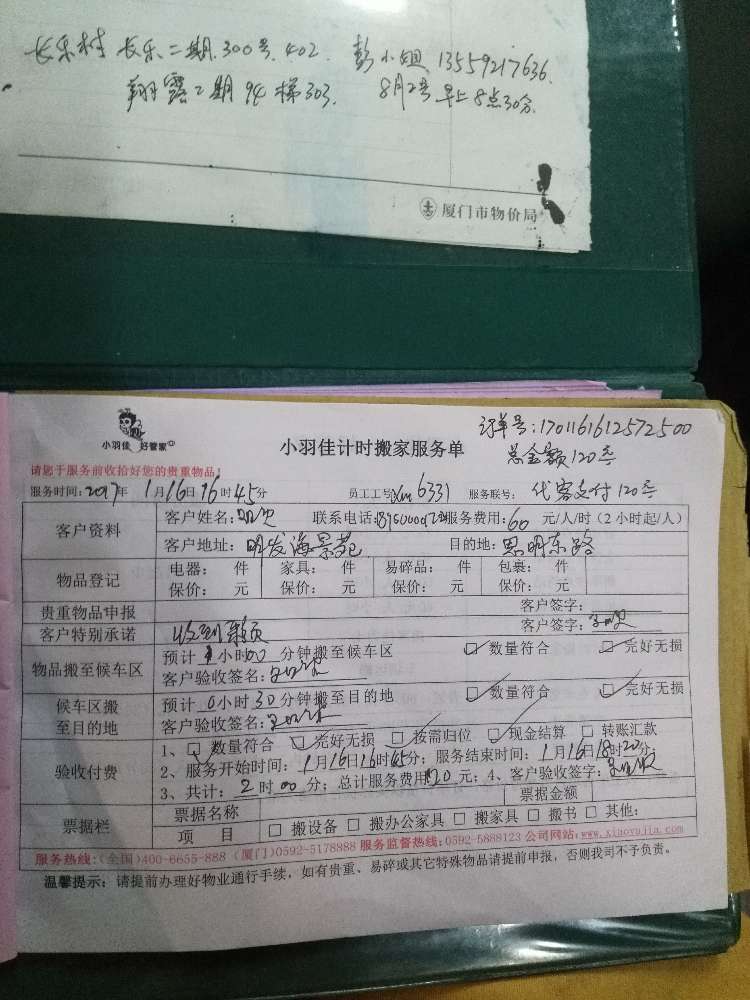 长乐村 长乐二期.300号.402. 彭小姐 13559217636.
翔鹭二期94梯303. 8月2号早上8点30分.
厦门市物价局
小羽佳 好管家
小羽佳计时搬家服务单
订单号:1701161612572500
总金额120元
请您于服务前收拾好您的贵重物品!
服务时间:2017年 1月16日16时45分 员工工号:xm6331 服务联号: 代客支付120元
客户资料 客户姓名: 联系电话: 服务费用:60 元/人/时(2小时起/人)
客户地址: 明发海景苑 目的地: 思明东路
物品登记 电器: 件 家具: 件 易碎品: 件 包裹: 件
保价: 元 保价: 元 保价: 元 保价: 元
贵重物品申报 客户签字:
客户特别承诺 收到 客户签字:
物品搬至候车区 预计 1小时00分钟搬至候车区 数量符合 完好无损
客户验收签名:
候车区搬至目的地 预计 0小时30分钟搬至目的地 数量符合 完好无损
客户验收签名:
验收付费 1、 数量符合 完好无损 按需归位 现金结算 转账汇款
2、服务开始时间: 1月16日16时45分; 服务结束时间: 1月16日18时20分;
3、共计: 2 时 00 分; 总计服务费用120元; 4、客户验收签字:
票据栏 票据名称 票据金额
项 目 搬设备 搬办公家具 搬家具 搬书 其他:
服务热线:(全国)400-6655-888 (厦门)0592-5178888 服务监督热线:0592-5888123 公司网站:www.xiaoyujia.com
温馨提示: 请提前办理好物业通行手续, 如有贵重、易碎或其它特殊物品请提前申报, 否则我司不予负责。